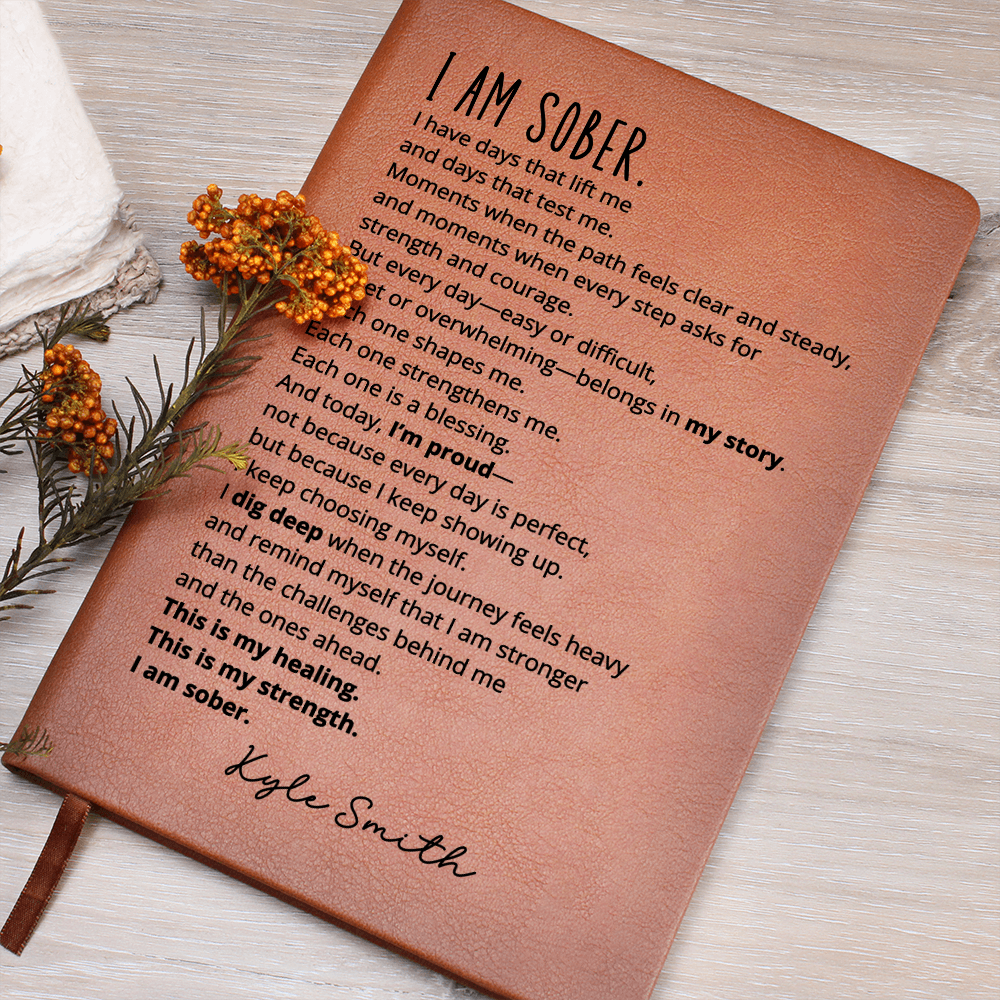 I AM SOBER.
I have days that lift me
and days that test me.
Moments when the path feels clear and steady,
and moments when every step asks for
strength and courage.
But every day—easy or difficult,
or overwhelming—belongs in my story.
one shapes me.
Each one strengthens me.
Each one is a blessing.
And today, I'm proud—
not because every day is perfect,
but because I keep showing up.
keep choosing myself.
I dig deep when the journey feels heavy
and remind myself that I am stronger
than the challenges behind me
and the ones ahead.
This is my healing.
This is my strength.
I am sober.
Kyle Smith